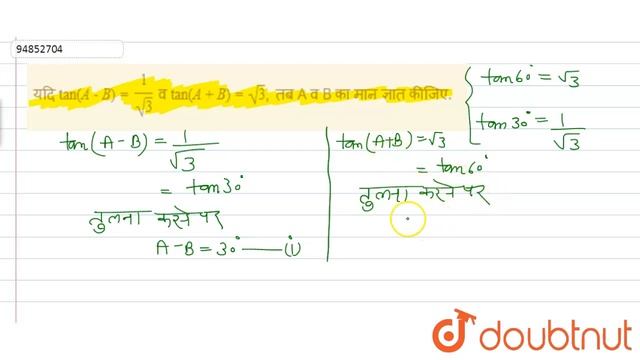 94852704
यदि tan(A - B) = 1/√3 व tan(A + B) = √3, तब A व B का मान ज्ञात कीजिए.
tan60° = √3
tan30° = 1/√3
tan(A-B) = 1/√3
= tan30°
तुलना करने पर
A-B = 30° —— (i)
tan(A+B) = √3
= tan60°
तुलना करने पर
doubtnut